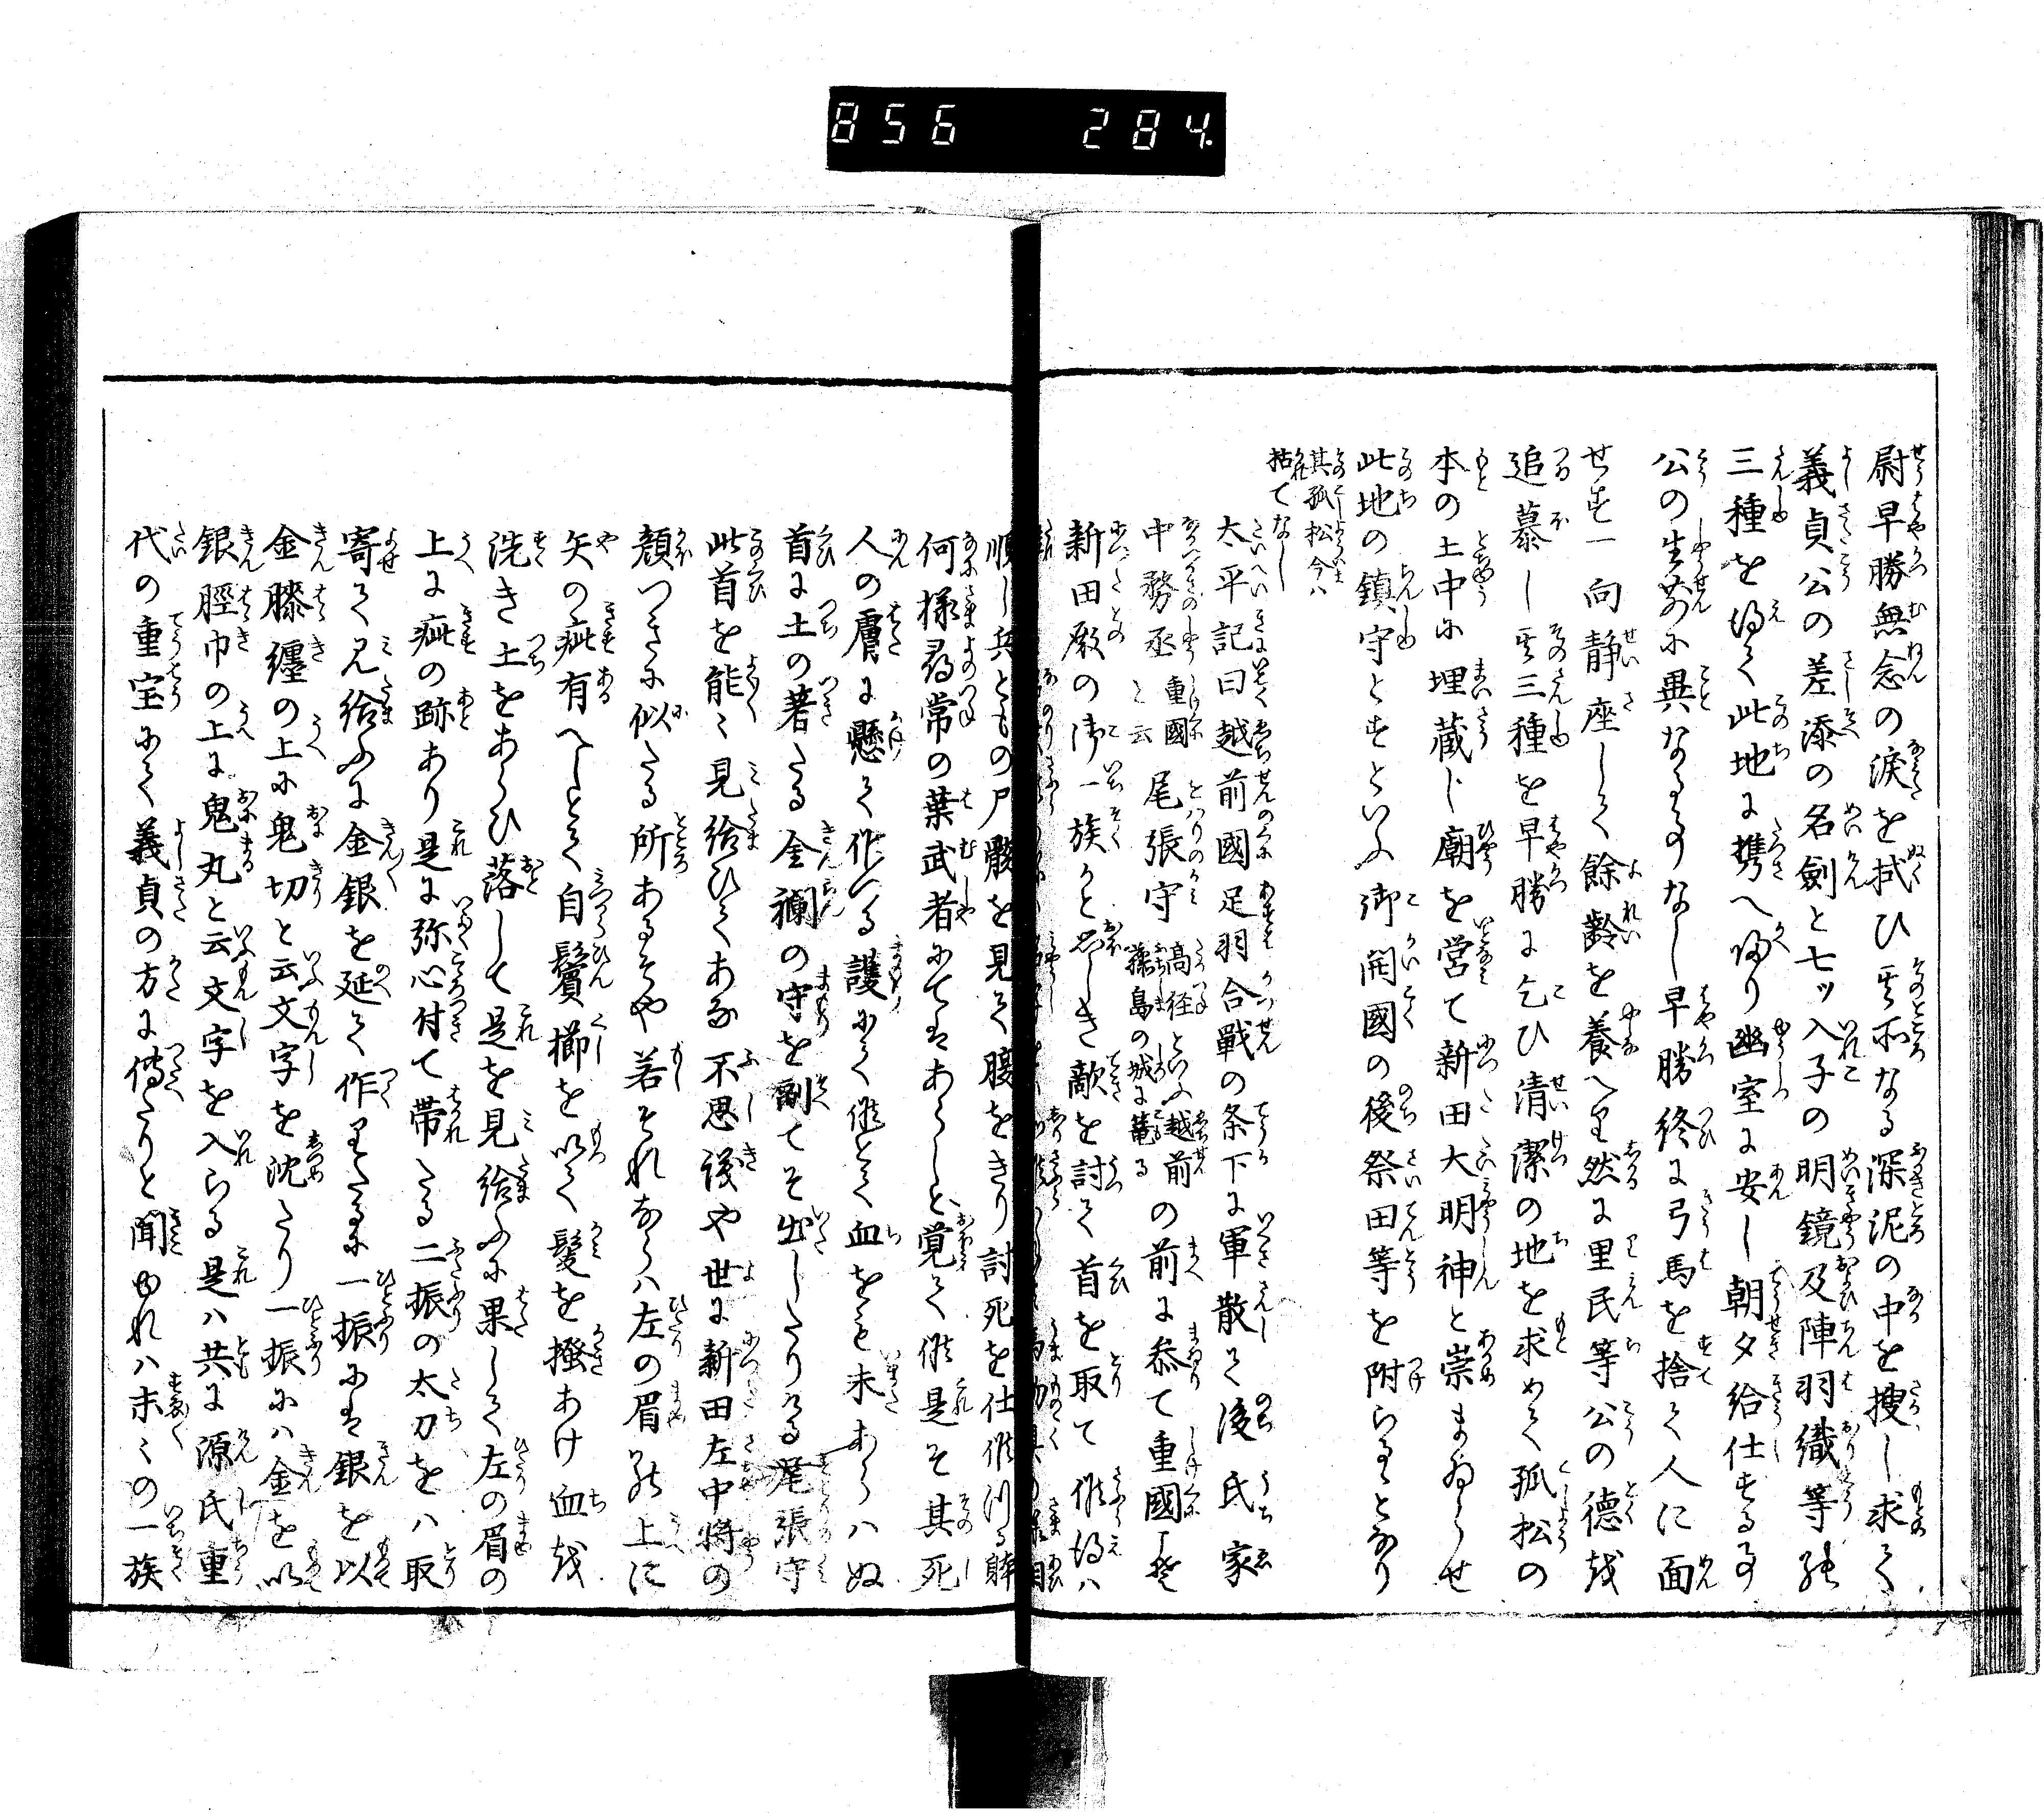 856 284.
尉早勝無念の涙を拭ひ其所なる深泥の中を捜し求て
義貞公の差添の名劍と七ッ入子の明鏡及陣羽織等
三種を得て此地に携へ帰り幽室に安し朝夕給仕する事
公の生前に異なる事なし早勝終に弓馬を捨て人に面
せす一向静座して餘齢を養へり然に里民等公の徳を
追慕し其三種を早勝に乞ひ清潔の地を求めて孤松の
本の土中に埋蔵し廟を営て新田大明神と崇まゐらせ
此地の鎮守とすといふ御開國の後祭田等を附らるとなり
其孤松今ハ
枯てなし
太平記曰越前國足羽合戰の条下に軍散て後氏家
中務丞重國と云尾張守高径といふ越前藤島の城に篭るの前に参て重國こそ
新田殿の御一族かと思しき敵を討て首を取て候得ハ
順し兵ともの尸骸を見て腹をきり討死を仕候つる躰
何様尋常の葉武者にてはあらしと覚て候是そ其死
人の膚に懸て作へる護にて候とて血をも未あらハぬ
首に土の著たる金襴の守を副てそ出したりける尾張守
此首を能〻見給ひてあな不思議や世に新田左中将の
顔つきに似たる所あるそや若それならハ左の眉の上に
矢の疵有へしとて自鬢櫛を以て髪を掻あけ血を
洗き土をあらひ落して是を見給ふに果して左の眉の
上に疵の跡あり是に弥心付て帯たる二振の太刀をハ取
寄て見給ふに金銀を延て作りたるに一振には銀を以
金膝纏の上に鬼切と云文字を沈たり一振にハ金を以
銀脛巾の上に鬼丸と云文字を入らる是ハ共に源氏重
代の重宝にて義貞の方に傳たりと聞ゆれハ末〻の一族